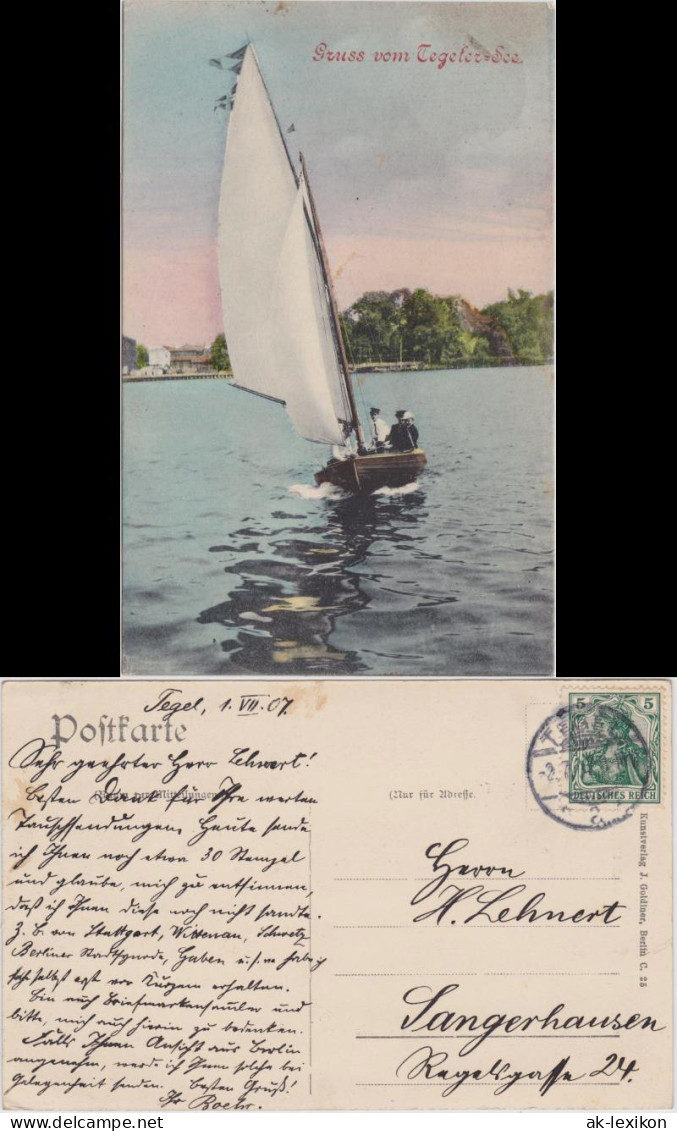 Gruss vom Tegeler-See.
Tegel, 1.VII.07.
Postkarte
Sehr geehrter Herr Lehnert!
besten Dank für Ihre werten
Tauschsendungen. Heute sende
ich Ihnen noch etwa 30 Stempel
und glaube, mich zu entsinnen,
daß ich Ihnen diese noch nicht sandte.
Z. B. von Stuttgart, Wittenau,
Berliner Guben u.s.m. habe ich
selbst erst vor Kurzem erhalten.
Bin auch Briefmarkensammler und
bitte, mich auch hierin zu bedenken.
Falls Ihnen Ansicht aus Berlin
angenehm, werde ich Ihnen solche bei
Gelegenheit senden. Besten Gruß!
Ihr
(Nur für Adresse.
5 5
DEUTSCHES REICH
TEGEL
Herrn
H. Lehnert
Sangerhausen
Rogelsgasse 24.
Kunstverlag J. Goldiner, Berlin C. 25
ak-lexikon